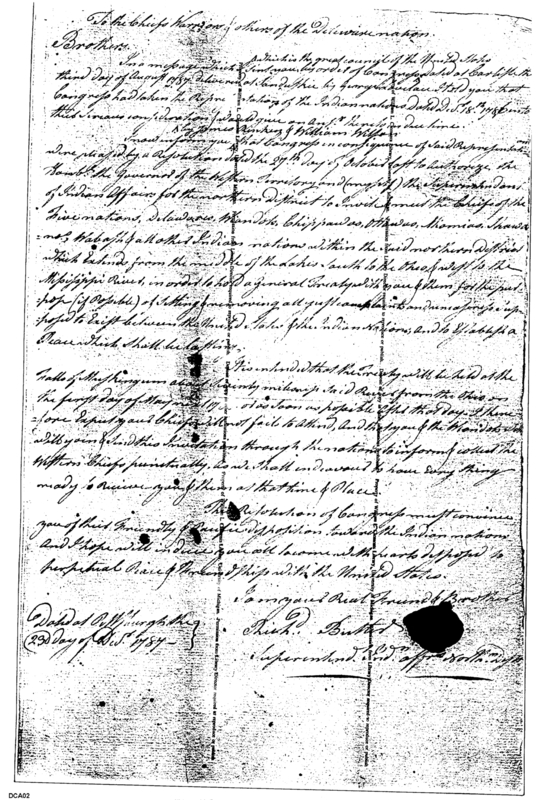 To the Chiefs Warriors & others of the Deleware nation.
Brothers
In a message which is the great council of the United States
sent you by order of Congress dated at Carlisle the
third day of August 1787 delivered at Sandusky by George Loveless I told you that
Congress had taken the Repre tations of the Indian nations Dated Decr. 18th 1786 into
their serious consideration & would give an Ansr. thereto in due time.
James Rinkin & William Wilson
I now inform you that Congress in consequence of said Representation
were pleased by a Resolution dated the day of October last to authorize the
Honble. the Governor of the Western Territory and (myself) the Superintendant
of Indian Affairs for the northern district to Invite & meet the Chiefs of the
Five nations, Delawares, Wiandots, Chippawas, Ottawas, Miamias, Shawa
=nes, Wabash & all other Indian nations within the said northern district
which Extends from the middle of the Lakes South to the Ohio & west to the
Mississippi River, in order to hold a General Treaty with you & them for the pur
pose (if Possible) of Settling & removing all just complaints and uneasiness sup
posed to Exist between the United States & the Indian Nations, and to Establish a
Peace which shall be lasting.
It is intended that the Treaty will be held at the
Falls of Muskingum about seventy miles up said River from the Ohio on
the first day of May or as soon as possible after that day. I there
=fore Expect your Chiefs will not fail to attend, And that you & the Wiandots
will join & send this Invitation through the nations to inform & collect the
Western Chiefs punctually, as we shall endeavour to have Every thing
ready to Receive you & them at that time & Place.
This Resolution of Congress must convince
you of their Friendly & Pacific disposition towards the Indian nations
And I hope will induce you all to come with hearts disposed to
perpetual Peace & Friendship with the United States.
I am your Real Friend & Brother
Dated at Pittsburgh the
23d day of Decr. 1787 -
Richd. Butler
Superintend. Ind. affrs. North. Distt.
DCA02